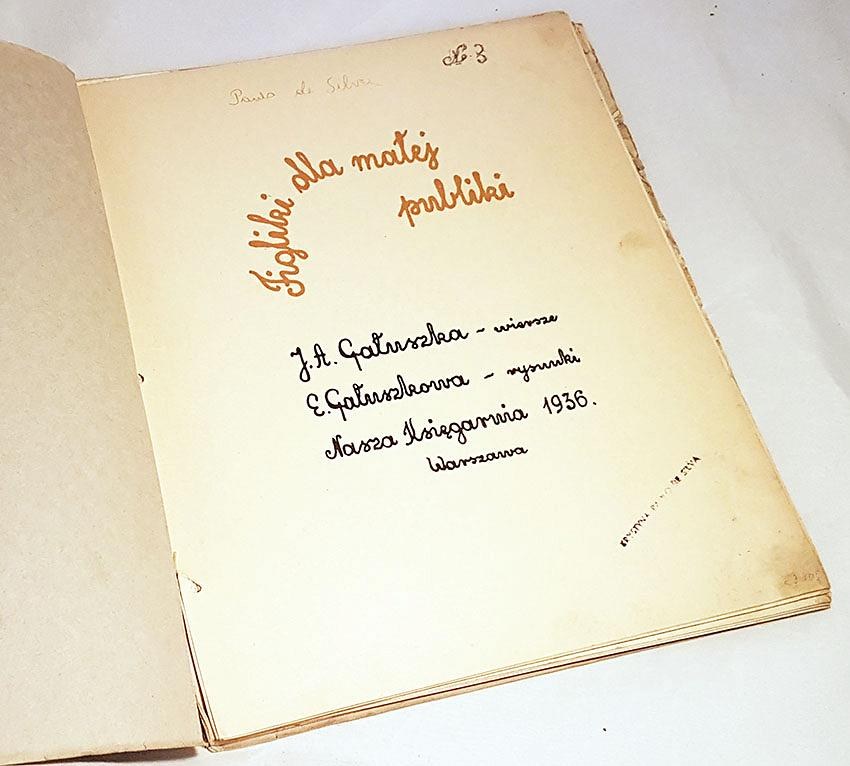 № 3
de
Figliki dla małej
publiki
J. A. Gałuszka - wiersze
E. Gałuszkowa - rysunki
Nasza Księgarnia 1936.
Warszawa
KRYSTYNA DE SILVA